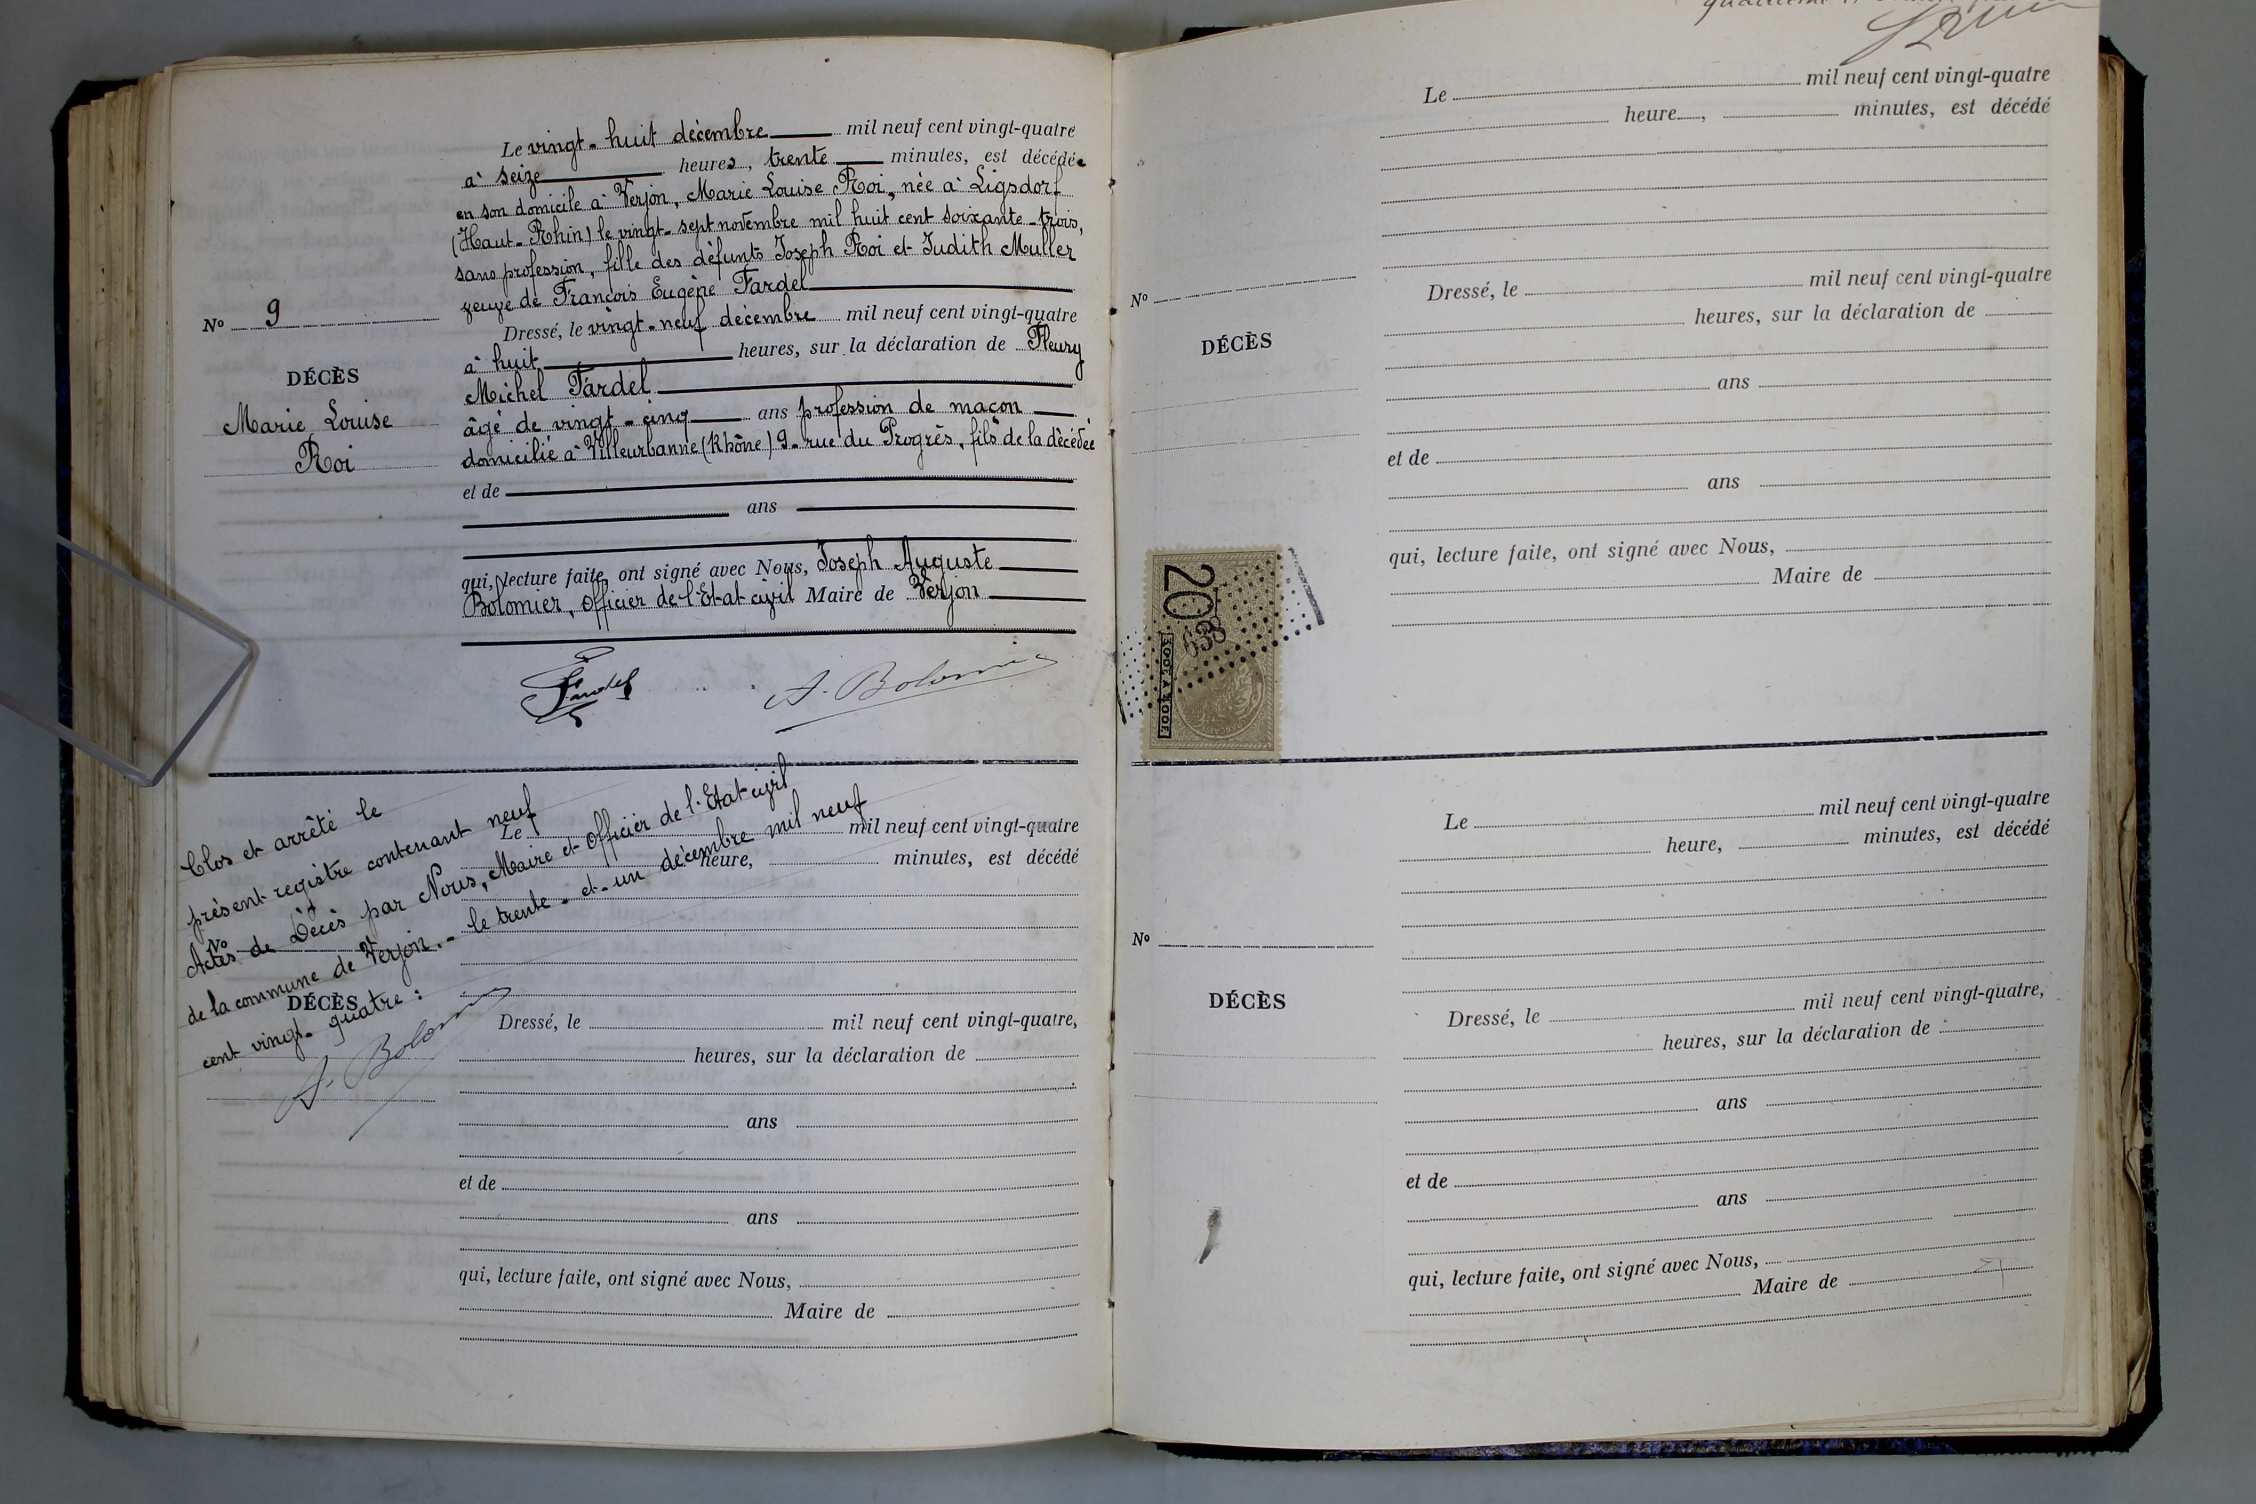 Le vingt-huit décembre mil neuf cent vingt-quatre
à seize heures, trente minutes, est décédée
en son domicile à Verjon, Marie Louise Roi, née à Ligsdorf
(Haut-Rhin) le vingt-sept novembre mil huit cent soixante-trois,
sans profession, fille des défunts Joseph Roi et Judith Muller
veuve de François Eugène Fardel
Nº 9
DÉCÈS
Marie Louise
Roi
Dressé, le vingt-neuf décembre mil neuf cent vingt-quatre
à huit heures, sur la déclaration de Fleury
Michel Fardel
âgé de vingt-cinq ans profession de maçon
domicilié à Villeurbanne (Rhône) 9 rue du Progrès, fils de la décédée
et de
ans
qui, lecture faite, ont signé avec Nous, Joseph Auguste
Bolomier, officier de l'Etat civil Maire de Verjon
Fardel A. Bolomier
Clos et arrêté le
présent registre contenant neuf
Actes de Décès par Nous, Maire et officier de l'Etat civil
de la commune de Verjon.- le trente-et-un décembre mil neuf
cent vingt-quatre :
A. Bolomier
Le mil neuf cent vingt-quatre
heure, minutes, est décédé
Nº
DÉCÈS
Dressé, le mil neuf cent vingt-quatre,
heures, sur la déclaration de
ans
et de
ans
qui, lecture faite, ont signé avec Nous,
Maire de
Le mil neuf cent vingt-quatre
heure, minutes, est décédé
Nº
DÉCÈS
Dressé, le mil neuf cent vingt-quatre
heures, sur la déclaration de
ans
et de
ans
qui, lecture faite, ont signé avec Nous,
Maire de
20
638
Le mil neuf cent vingt-quatre
heure, minutes, est décédé
Nº
DÉCÈS
Dressé, le mil neuf cent vingt-quatre,
heures, sur la déclaration de
ans
et de
ans
qui, lecture faite, ont signé avec Nous,
Maire de